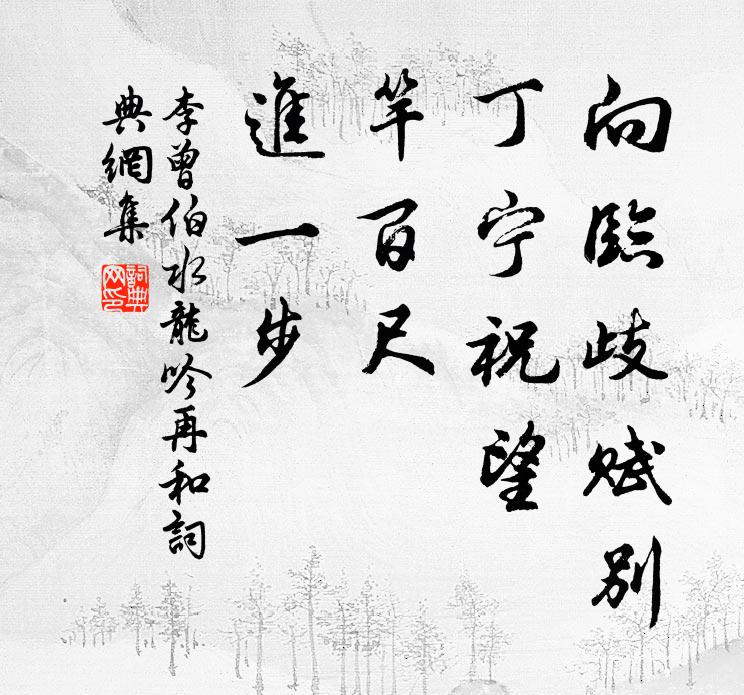 向臨歧賦別
丁宁祝望
竿百尺
進一步
李曾伯水龍吟再和詞
典網集
詞典
网印